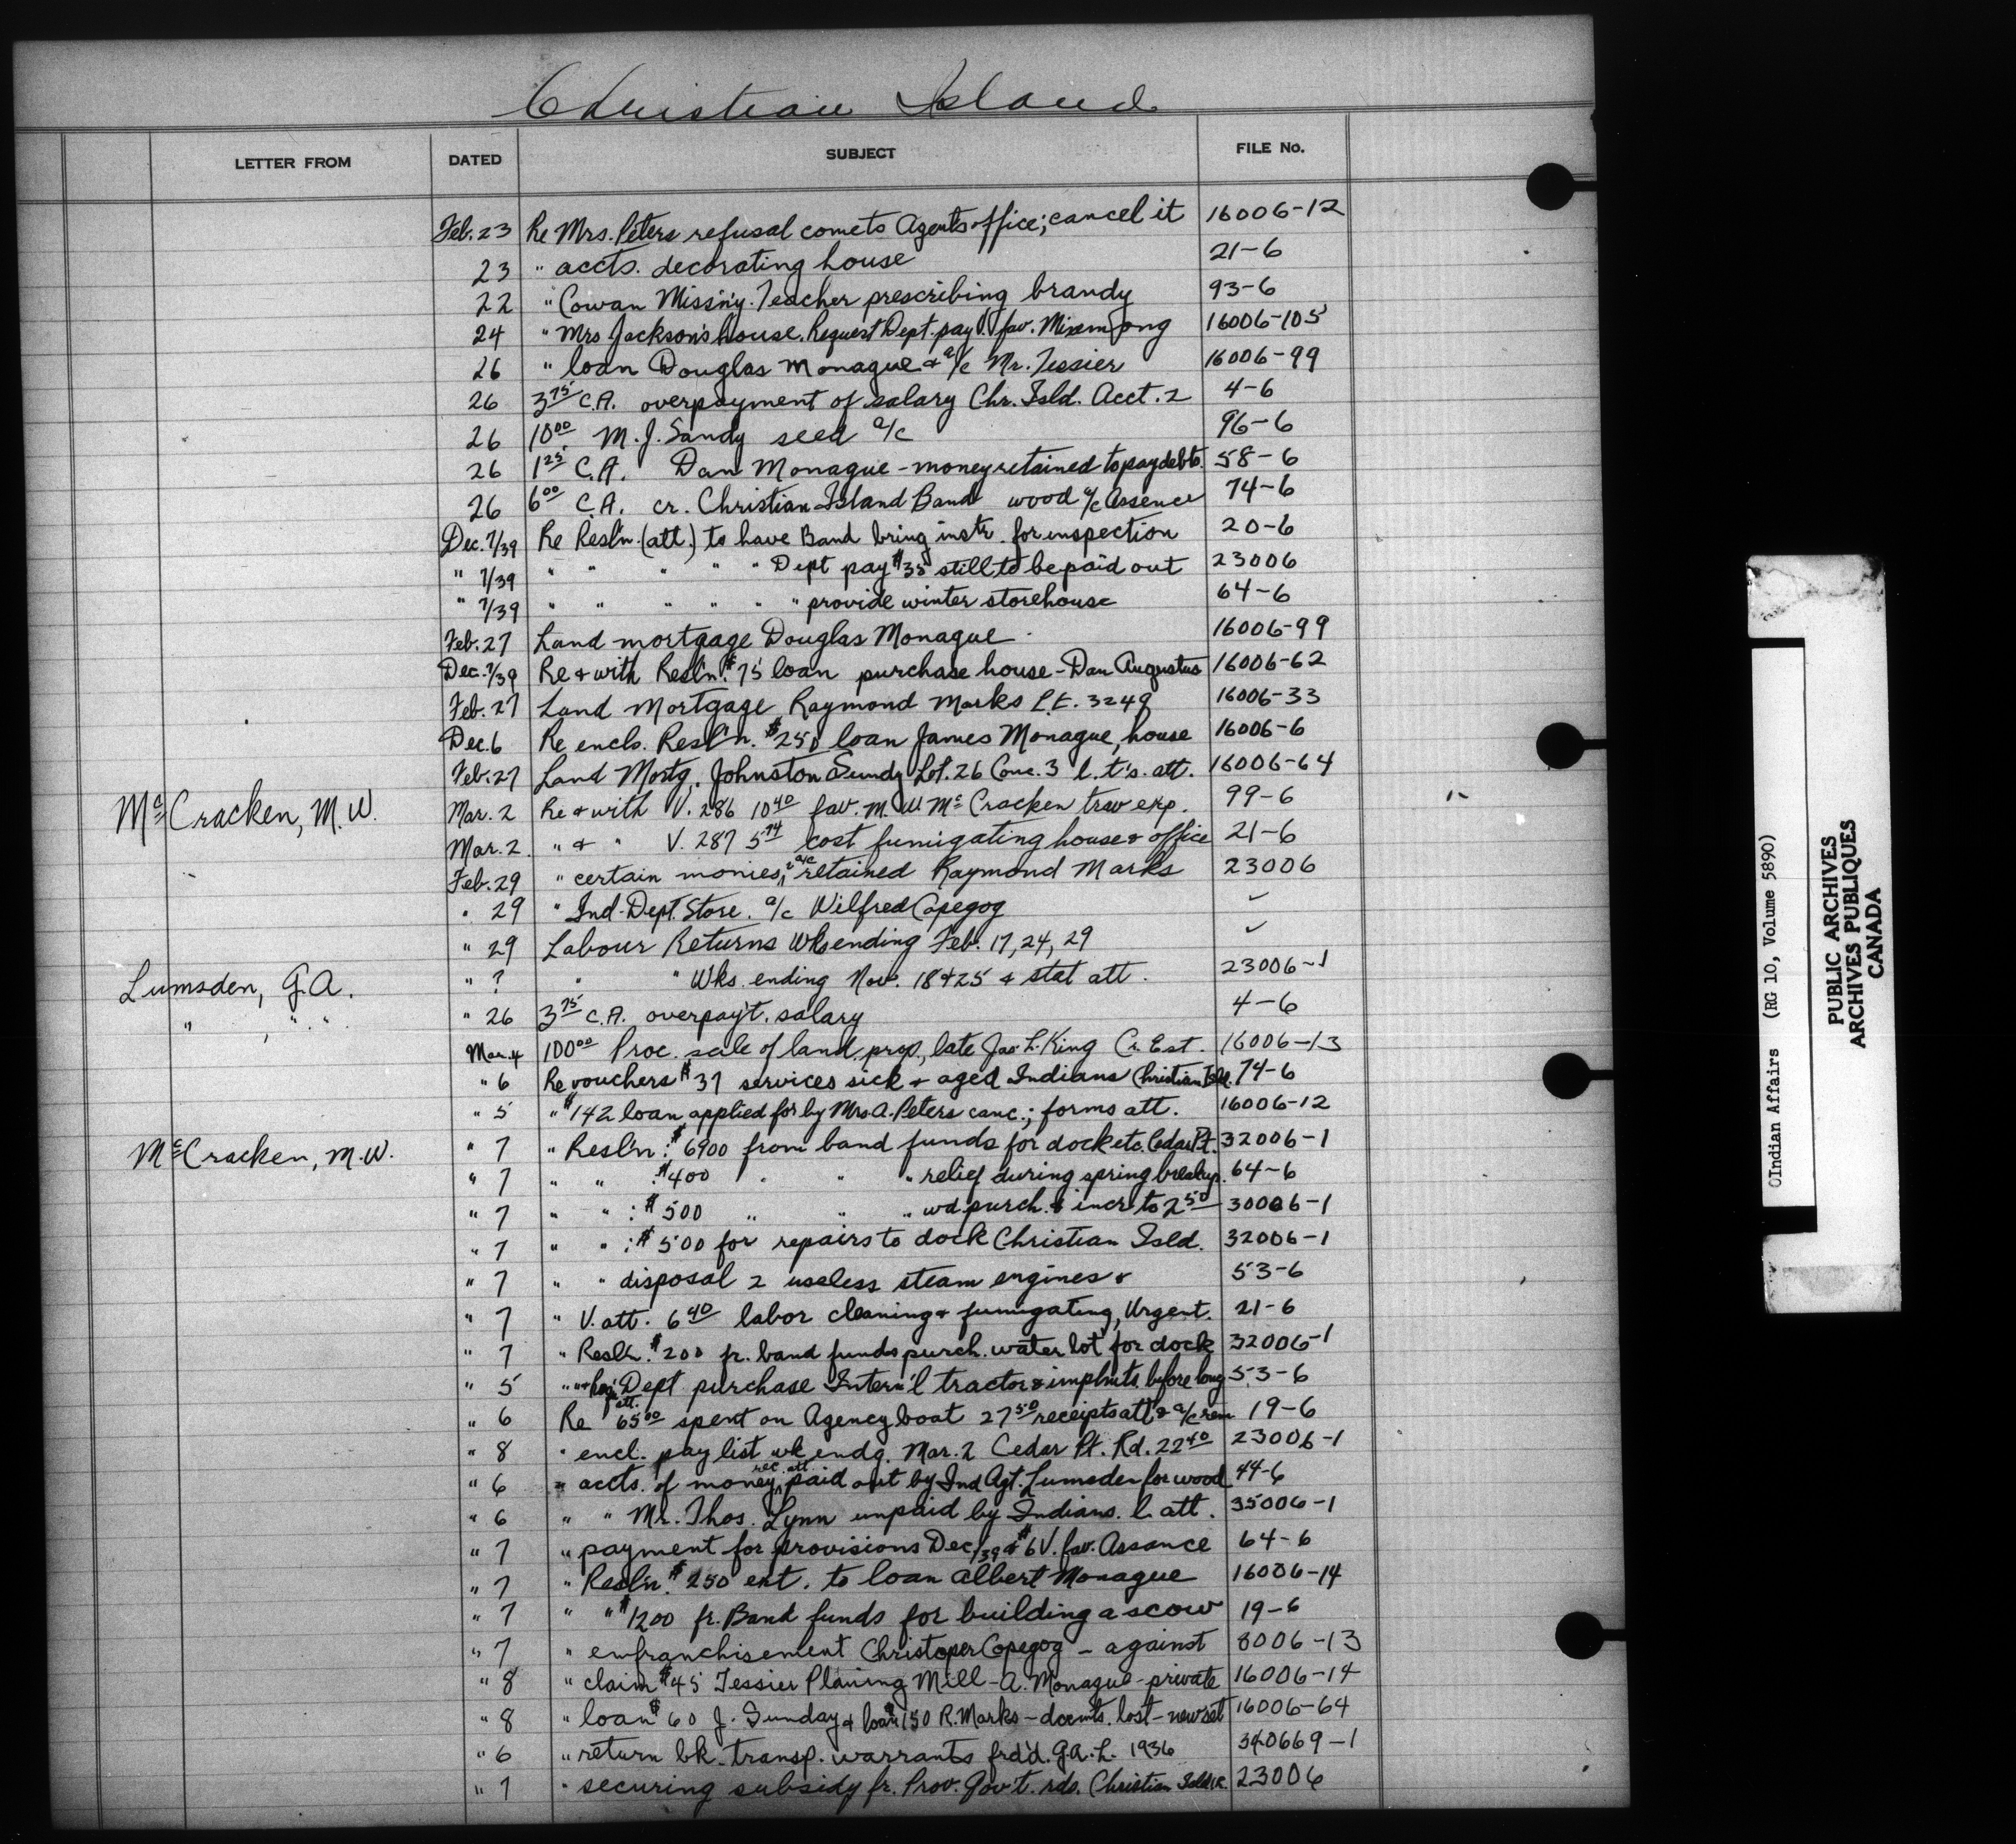 Christian Island
LETTER FROM DATED SUBJECT FILE No.
Feb. 23 Re Mrs. Peters refusal come to Agent's office; cancel it 16006-12
23 " accts. decorating house 21-6
22 " Cowan Miss'ny. Teacher prescribing brandy 93-6
24 " Mrs Jackson's house. Request Dept. pay fav. 16006-105
26 " loan Douglas Monague & a/c Mr. Tessier 16006-99
26 3 75 C.A. overpayment of salary Chr. Isld. Acct. 2 4-6
26 10 00 M. J. Sandy seed a/c 96-6
26 1 25 C.A. Dan Monague - money retained to pay debts. 58-6
26 6 00 C.A. cr. Christian Island Band wood a/c Assence 74-6
Dec. 7/39 Re Resl'n. (att.) to have Band bring instr. for inspection 20-6
" 7/39 " " " " " Dept pay $35 still to be paid out 23006
" 7/39 " " " " " " provide winter storehouse 64-6
Feb. 27 Land mortgage Douglas Monague 16006-99
Dec. 7/39 Re & with Resl'n. $75 loan purchase house - Dan Augustus 16006-62
Feb. 27 Land Mortgage Raymond Marks L.T. 3249 16006-33
Dec. 6 Re encls. Resl'n. $250 loan James Monague, house 16006-6
Feb. 27 Land Mortg. Johnston Sunday Lot. 26 Conc. 3 l.t's. att. 16006-64
McCracken, M. W. Mar. 2 Re & with V. 286 10 40 fav. M. W. McCracken trav exp. 99-6
Mar. 2. " & " V. 287 5 74 cost fumigating house & office 21-6
Feb. 29 " certain monies, & a/c retained Raymond Marks 23006
" 29 " Ind. Dept. Store. a/c Wilfred Copegog ✓
" 29 Labour Returns Wks ending Feb. 17, 24, 29 ✓
Lumsden, G. A. " ? " " Wks. ending Nov. 18 & 25 & stat att. 23006-1
" , " . " " 26 3 75 C.A. overpay't. salary 4-6
Mar. 4 100 00 Proc. sale of land. prop., late Jas. L. King Cr. Est. 16006-13
" 6 Re vouchers $37 services sick & aged Indians Christian Isld. 74-6
" 5 " $142 loan applied for by Mrs. A. Peters canc.; forms att. 16006-12
McCracken, M. W. " 7 " Resl'n: $6900 from band funds for dock etc. Cedar Pt. 32006-1
" 7 " " : $400 " " " relief during spring breakup. 64-6
" 7 " " : $500 " " " wd purch. & incr. to 2 50 30006-1
" 7 " " : $500 for repairs to dock Christian Isld. 32006-1
" 7 " " disposal 2 useless steam engines & 53-6
" 7 " V. att. 6 40 labor cleaning & fumigating, Urgent. 21-6
" 7 " Resl'n. $200 fr. band funds purch. water lot for dock 32006-1
" 5 " " & Req. Dept purchase Intern'l tractor & implmts. before long 53-6
" 6 Re att. 65 00 spent on Agency boat 27 50 receipts att & a/c rem 19-6
" 8 " encl. pay list wk endg. Mar. 2 Cedar Pt. Rd. 22 40 23006-1
" 6 " accts. of money, rec. att. paid out by Ind Agt. Lumsden for wood 44-6
" 6 " " Mr. Thos. Lynn unpaid by Indians. l. att. 35006-1
" 7 " payment for provisions Dec/39 & $6 V. fav. Assance 64-6
" 7 " Resl'n. $250 ext. to loan Albert Monague 16006-14
" 7 " " $1200 fr. Band funds for building a scow 19-6
" 7 " enfranchisement Christoper Copegog - against 8006-13
" 8 " claim $45 Tessier Planing Mill - A. Monague - private 16006-14
" 8 " loan $60 J. Sunday & loan $150 R. Marks - docmts. lost - new set 16006-64
" 6 " return bk. transp. warrants frd'd. G.A.L. 1936 340669-1
" 7 " securing subsidy fr. Prov. Gov't. rds. Christian Isld I.R. 23006
Indian Affairs (RG 10, Volume 5890)
PUBLIC ARCHIVES
ARCHIVES PUBLIQUES
CANADA